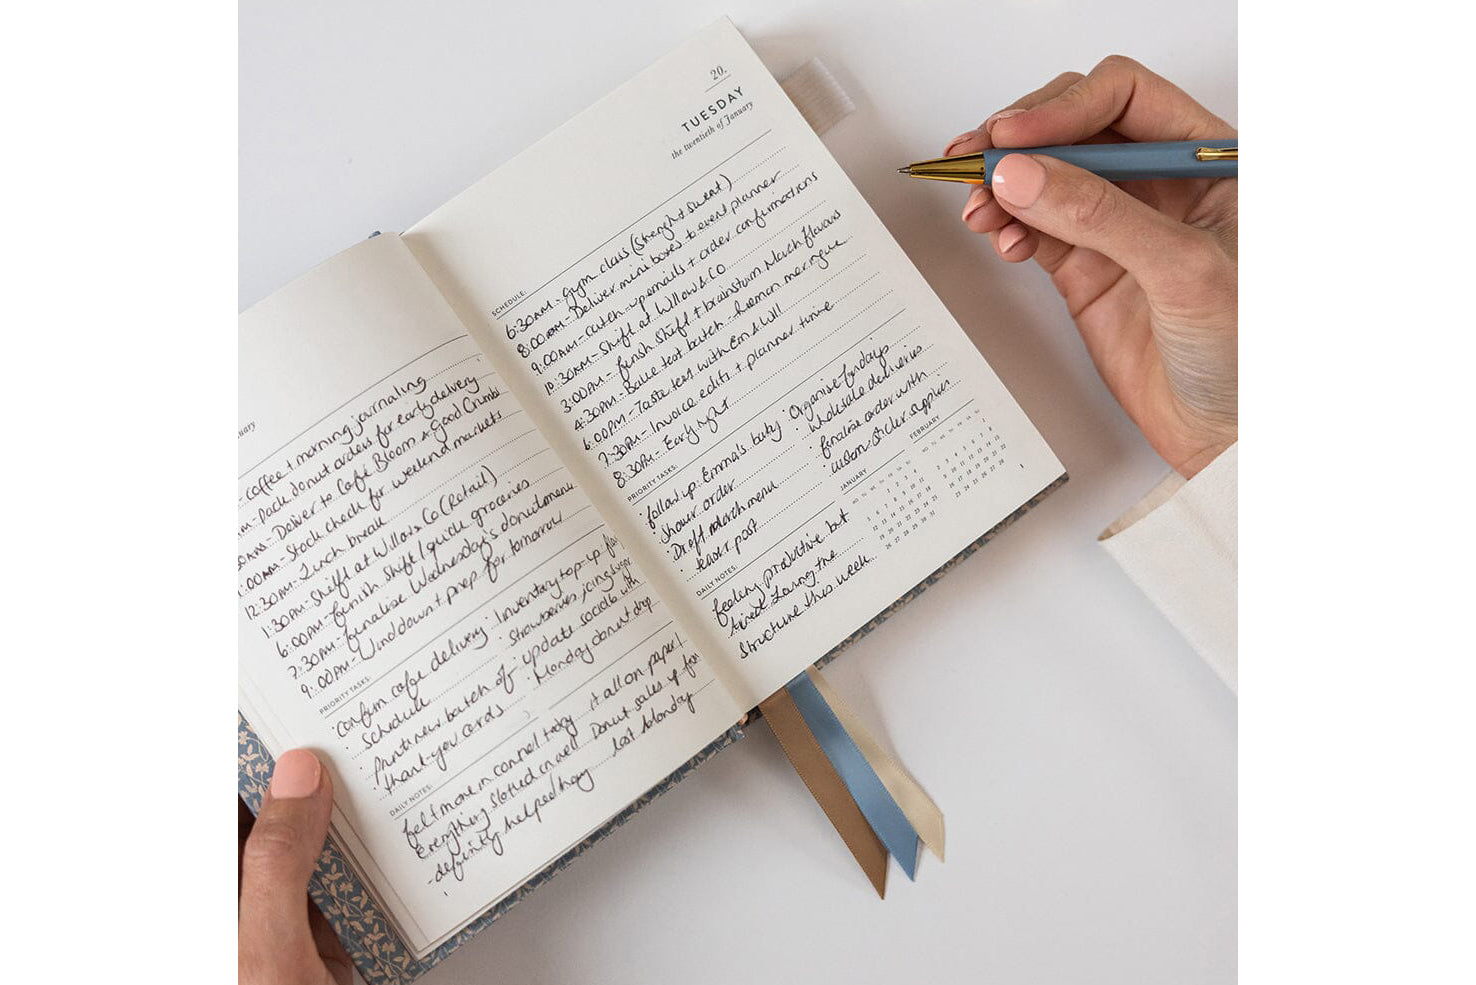 uary
- coffee + morning journaling
AM - Pack donut orders for early delivery
AM - Deliver to Café Bloom & Good Crumb
:00AM - Stock check for weekend markets
12:30PM - Lunch break
1:30PM - Shift at Willow & Co (Retail)
6:00PM - finish shift / quick groceries
7:30PM - finalise Wednesday's donut menu
9:00PM - Wind down + prep for tomorrow
PRIORITY TASKS:
· confirm cafe delivery
schedule
· Print new batch of
thank-you cards
· Inventory top-up
strawberries, icing sugar
· update socials with
Monday donut drop
DAILY NOTES:
felt more in control today
Everything slotted in well
- definitely helped having
it all on paper!
Donut sales up from
last Monday
20.
TUESDAY
the twentieth of January
SCHEDULE:
6:30AM - Gym class (Strenght + sweat)
8:00AM - Deliver mini boxes to event planner
9:00AM - catch-up emails + order confirmations
10:30AM - Shift at Willow & Co
3:00PM - finish shift + brainstorm March flavours
4:30PM - Bake test batch - lemon meringue
6:00PM - Taste test with Em & Will
7:30PM - Invoice edits + planner time
8:30PM - Early night
PRIORITY TASKS:
· follow up Emma's baby
shower order
· Draft march menu
teaser post
· Organise fridays
wholesale deliveries
· finalise order with
custom sticker supplier
DAILY NOTES:
feeling productive but
tired. Loving the
structure this week.
JANUARY
FEBRUARY